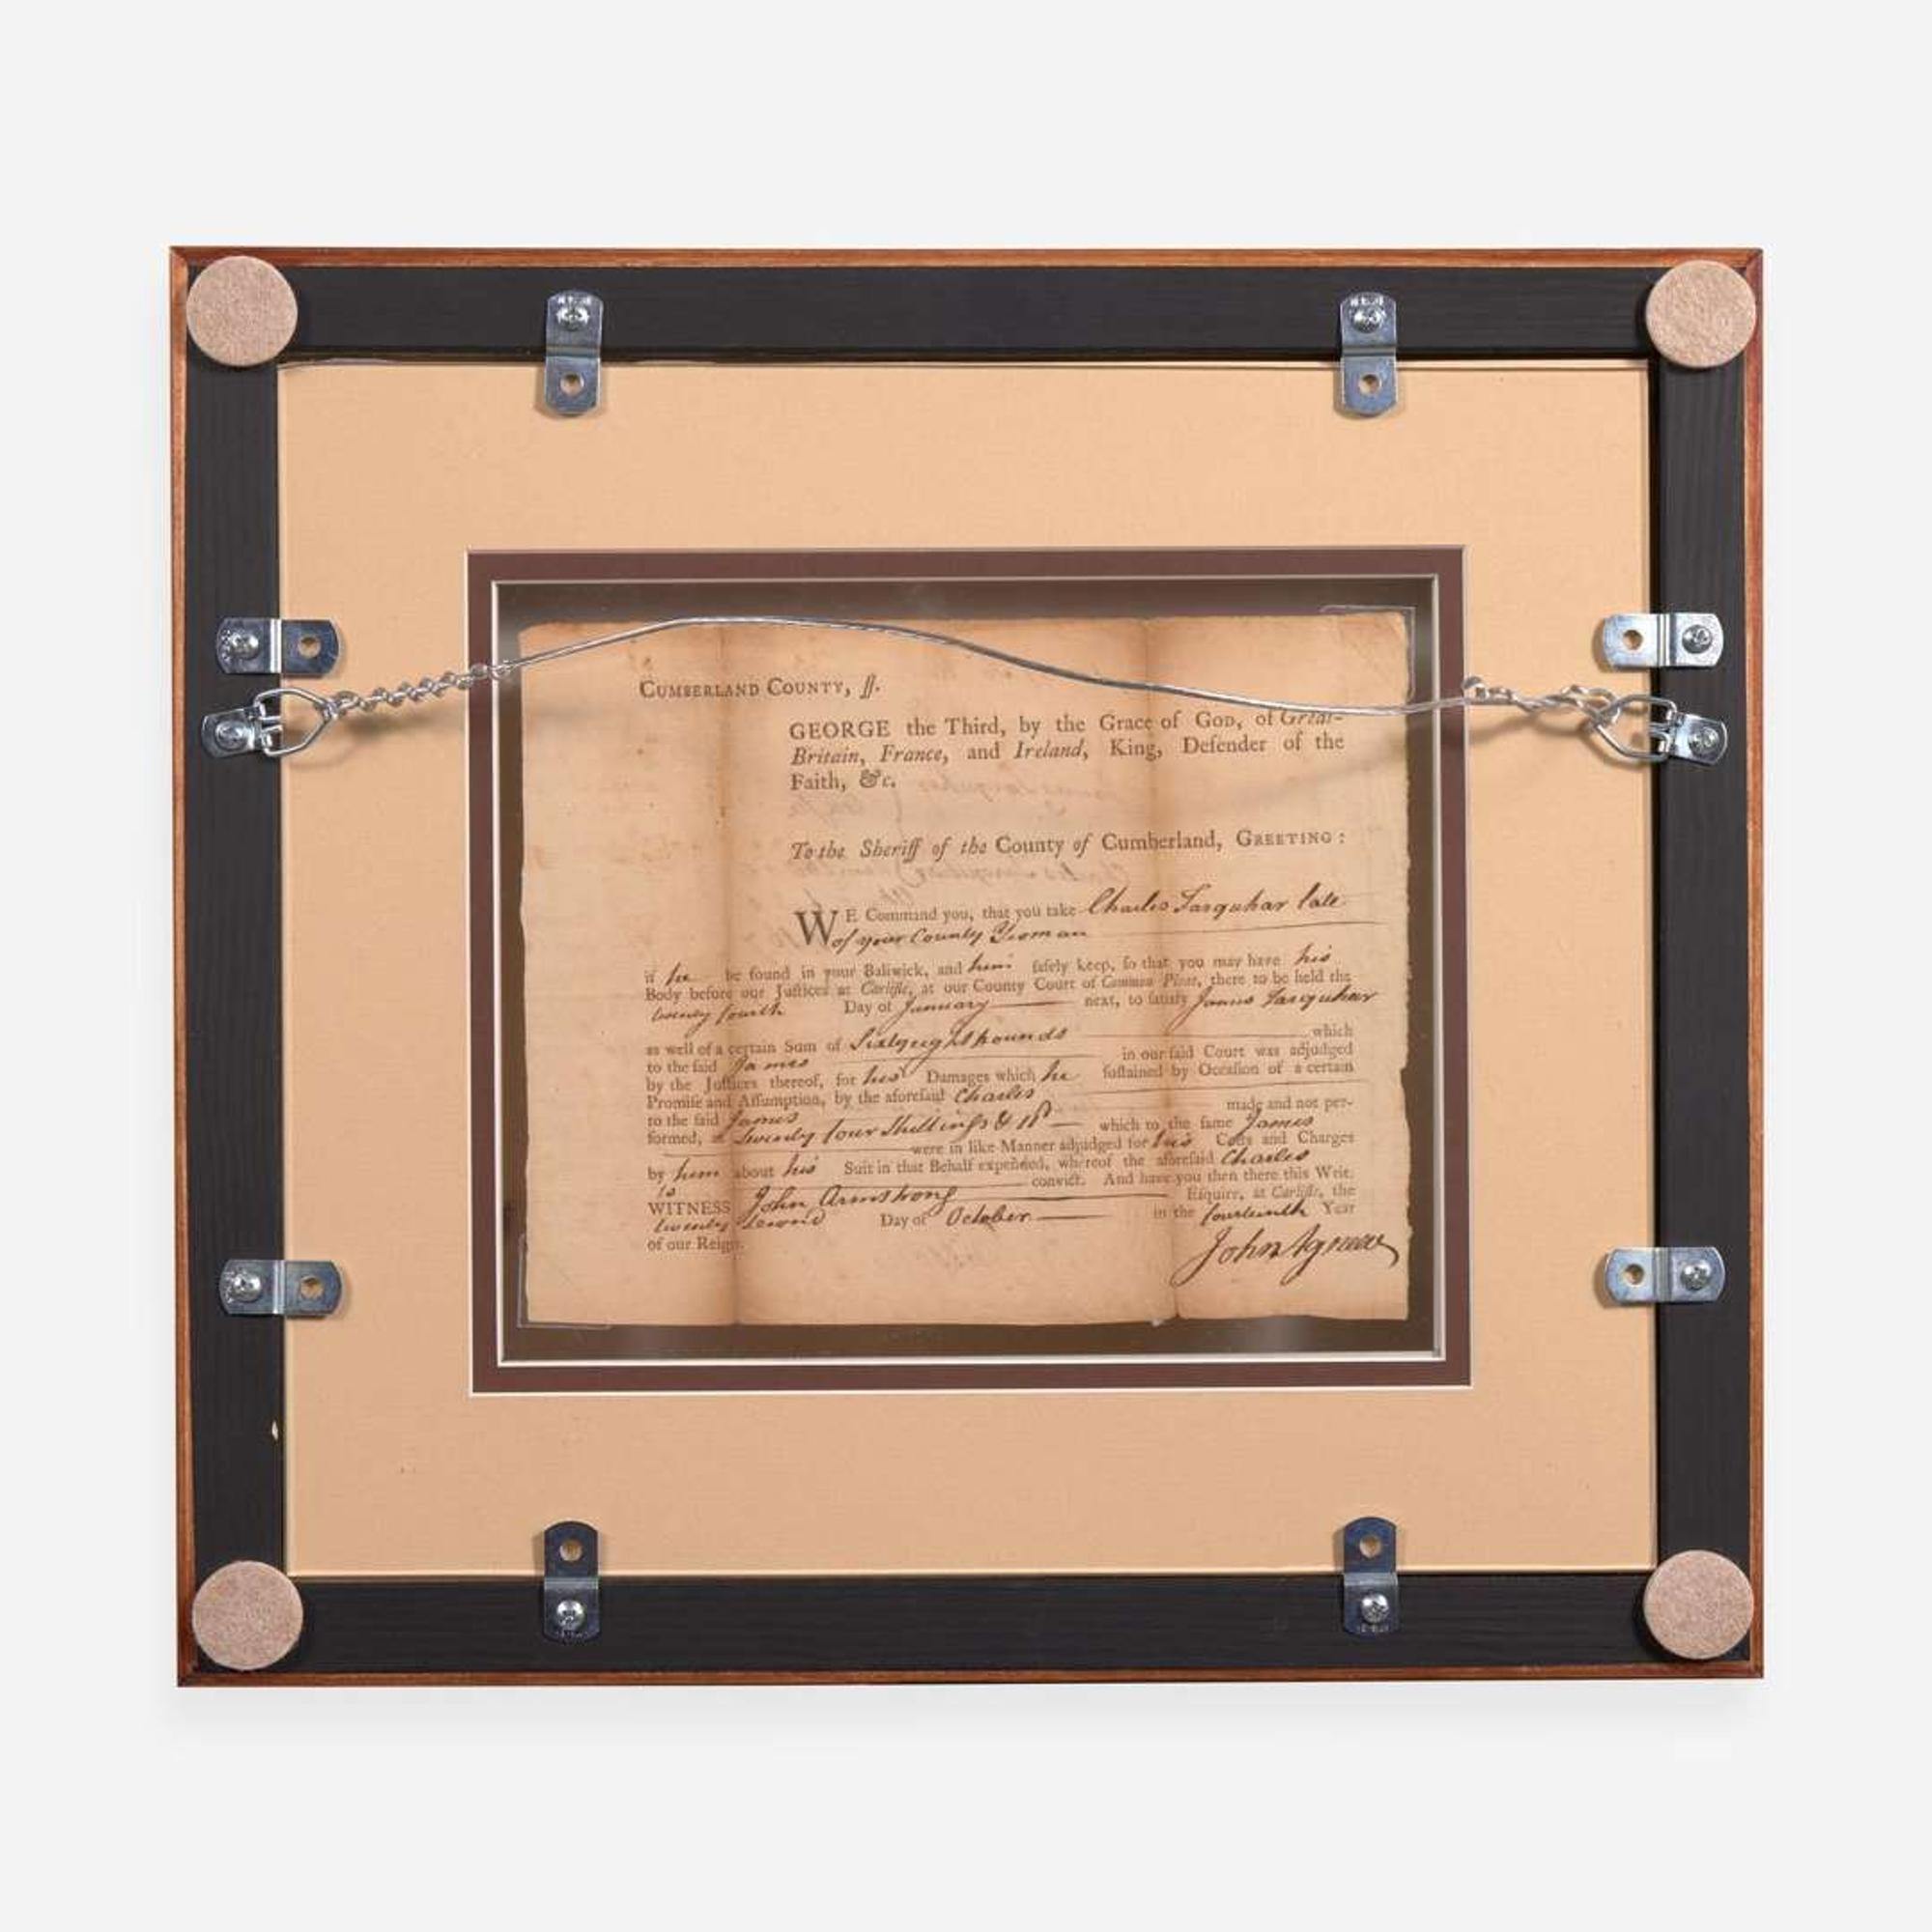 CUMBERLAND COUNTY, ſſ.
GEORGE the Third, by the Grace of GOD, of Great-
Britain, France, and Ireland, King, Defender of the
Faith, &c.
To the Sheriff of the County of Cumberland, GREETING:
WE Command you, that you take Charles Farquhar late
of your County Yeoman
if he be found in your Baliwick, and him ſafely keep, ſo that you may have his
Body before our Juſtices at Carliſle, at our County Court of Common Pleas, there to be held the
twenty fourth Day of January next, to ſatisfy James Farquhar
as well of a certain Sum of Sixty eight pounds which
to the ſaid James in our ſaid Court was adjudged
by the Juſtices thereof, for his Damages which he ſuſtained by Occaſion of a certain
Promiſe and Aſſumption, by the aforeſaid Charles
to the ſaid James made and not per-
formed, twenty four Shillings & which to the ſame James
were in like Manner adjudged for his Coſts and Charges
by him about his Suit in that Behalf expended, whereof the aforeſaid Charles
is convict. And have you then there this Writ.
WITNESS John Armstrong Eſquire, at Carliſle, the
twenty second Day of October in the fourteenth Year
of our Reign.
John Agnew